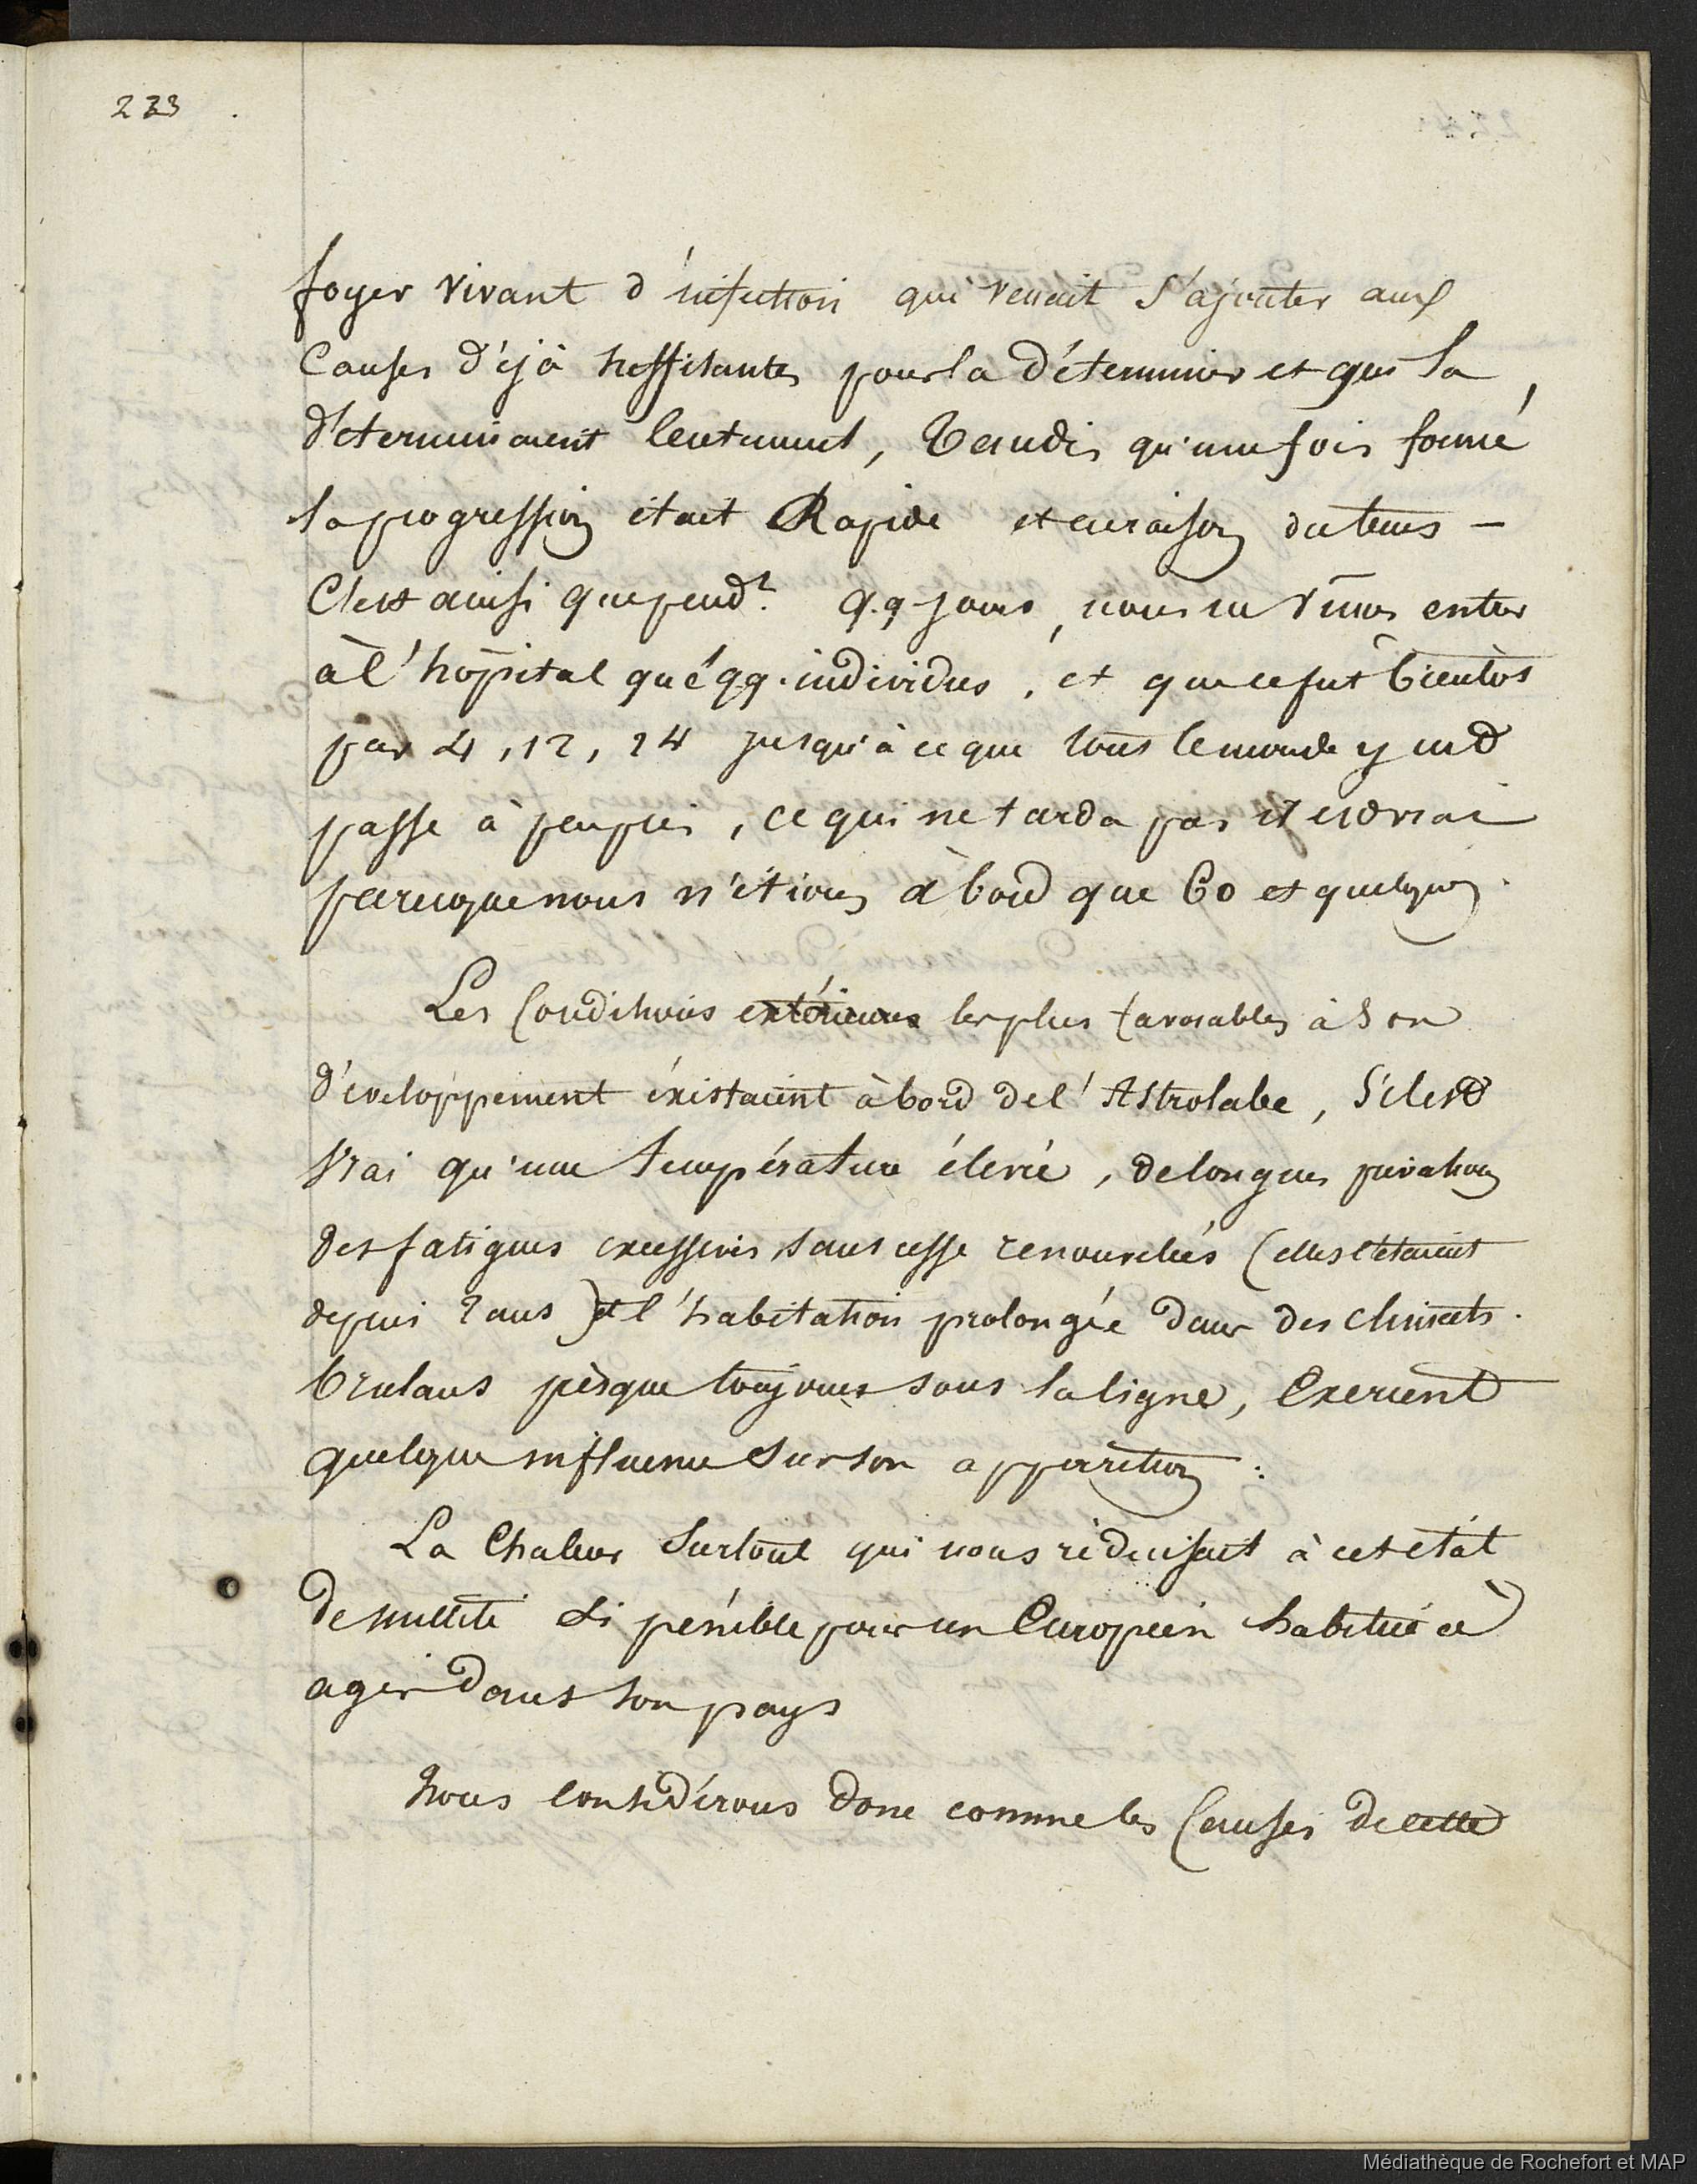 223
foyer vivant d'infection qui venait s'ajouter aux
Causes déjà suffisantes pour la déterminer et qui la
déterminaient lentement, tandis qu'une fois formé
la progression était Rapide et en raison du tems –
C'est ainsi que pendt. q.q jours, nous ne vîmes entrer
à l'hôpital que qq. individus, et que ce fut bientôt
par 4, 12, 14 jusqu'à ce que tous le monde y eut
passé à peu près, ce qui ne tarda pas il est vrai
parceque nous n'étions à bord que 60 et quelques.
Les Conditions extérieures les plus favorables à son
développement existaient à bord de l'Astrolabe, s'il est
vrai qu'une température élevée, de longues privations
des fatigues excessives sans cesse renouvelées (elles l'étaient
depuis 2 ans) et l'habitation prolongée dans des climats
brulans presque toujours sous la ligne, Exercent
quelque influence sur son apparition.
La Chaleur Surtout qui nous réduisait à cet état
de nullité si pénible pour un Européen habitué à
agir dans son pays
Nous considérons donc comme les Causes de cette
Médiathèque de Rochefort et MAP